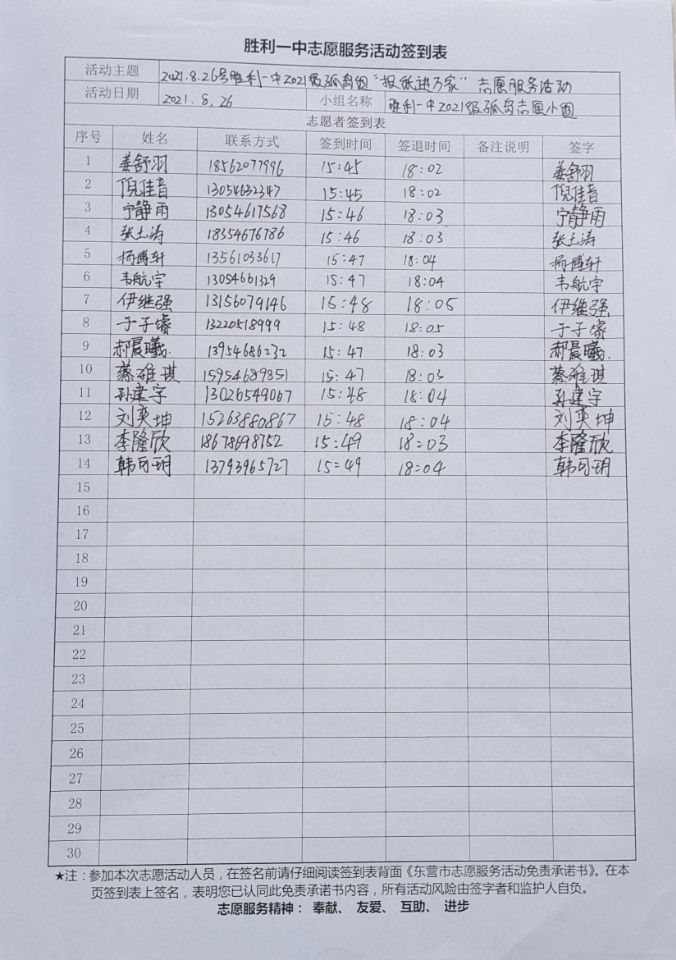 胜利一中志愿服务活动签到表
活动主题 2021.8.26号胜利一中2021级孤岛团"报纸进万家"志愿服务活动
活动日期 2021.8.26 小组名称 胜利一中2021级孤岛志愿小团
志愿者签到表
序号 姓名 联系方式 签到时间 签退时间 备注说明 签字
1 姜舒羽 18562077996 15:45 18:02 姜舒羽
2 倪佳音 13054632347 15:45 18:02 倪佳音
3 宁静雨 13054617568 15:46 18:03 宁静雨
4 张土涛 18354676786 15:46 18:03 张土涛
5 杨博轩 13561033617 15:47 18:04 杨博轩
6 韦航宇 13054661329 15:47 18:04 韦航宇
7 伊继强 13156079146 15:48 18:05 伊继强
8 于子睿 13220518999 15:48 18:05 于子睿
9 郝晨曦 13954686232 15:47 18:03 郝晨曦
10 蔡雅琪 15954689851 15:47 18:03 蔡雅琪
11 孙建宇 13026549067 15:48 18:04 孙建宇
12 刘奕坤 15263880867 15:48 18:04 刘奕坤
13 李隆欣 18678698752 15:49 18:03 李隆欣
14 韩可玥 13793965727 15:49 18:04 韩可玥
15
16
17
18
19
20
21
22
23
24
25
26
27
28
29
30
★注：参加本次志愿活动人员，在签名前请仔细阅读签到表背面《东营市志愿服务活动免责承诺书》。在本
页签到表上签名，表明您已认同此免责承诺书内容，所有活动风险由签字者和监护人自负。
志愿服务精神： 奉献、 友爱、 互助、 进步